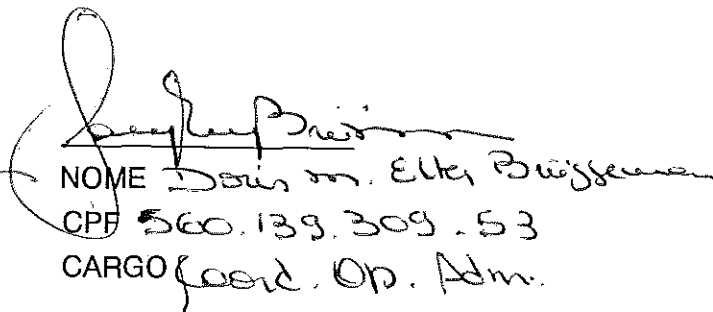 NOME Doris m. Elter Brüggemann
CPF 560.139.309-53
CARGO Coord. Op. Adm.